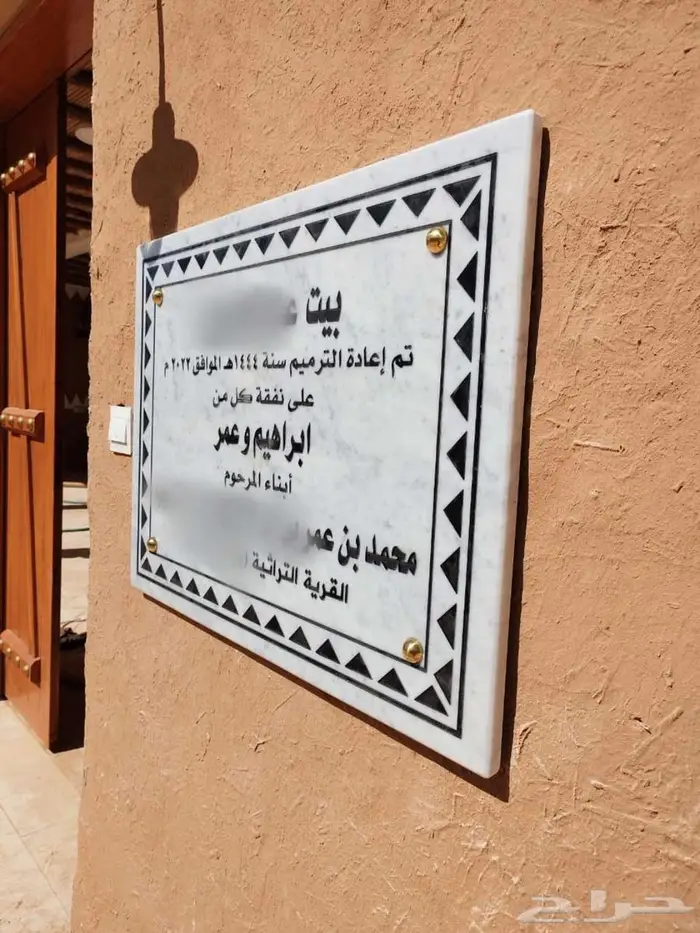 بيت
تم إعادة الترميم سنة ١٤٤٤هـ الموافق ٢٠٢٢ م
على نفقة كل من
ابراهيم و عمر
أبناء المرحوم
محمد بن عمر
القرية التراثية
حراج